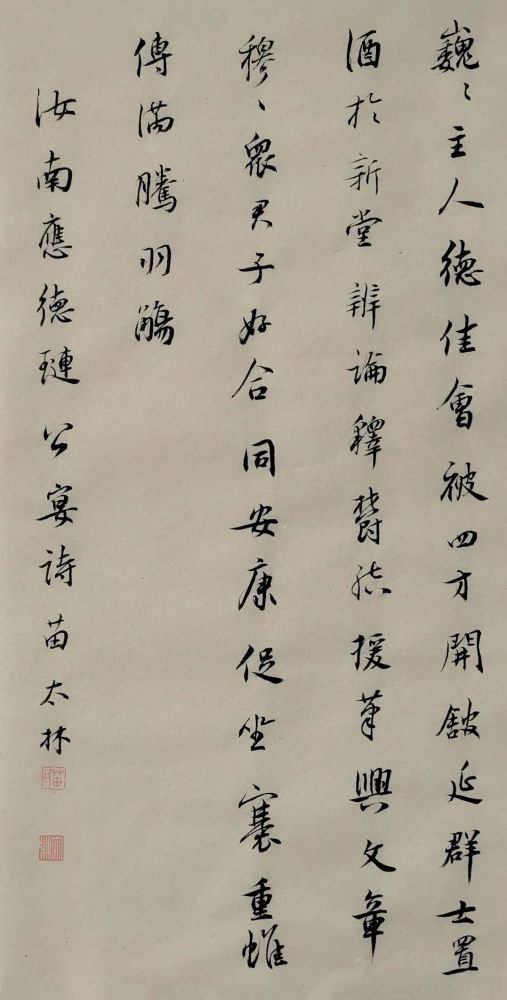 巍〻主人德佳會被四方開館延群士置
酒於新堂辨論釋鬱結援筆興文章
穆〻眾君子好合同安康促坐褰重帷
傳滿騰羽觴
汝南應德璉公宴詩苗太林